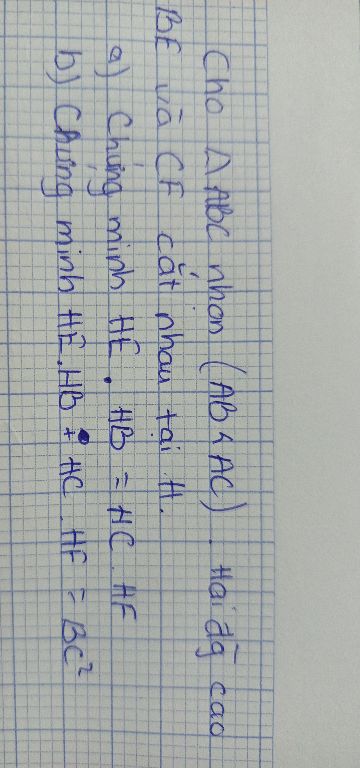 Cho Δ ABC nhọn (AB < AC). Hai đg̃ cao
BE và CF cắt nhau tại H.
a) Chứng minh HE . HB = HC . HF
b) Chứng minh HE . HB + HC . HF = BC²